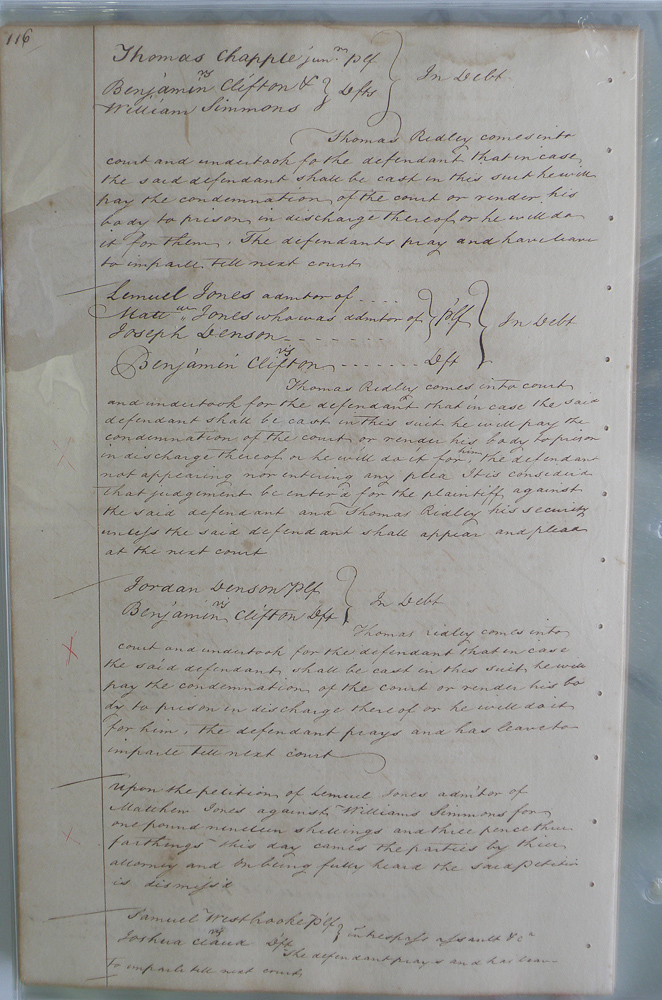 116
Thomas Chapple junr. Plf
vs
Benjamin Clifton & } Dfts } In Debt
William Simmons
Thomas Ridley comes into
court and undertook fo the defendant that in case
the said defendant shall be cast in this suit he will
pay the condemnation of the court or render his
body to prison in discharge thereof or he will do
it for them, The defendants pray and have leave
to imparle till next court
Lemuel Jones admtor of ....
Mattw. Jones who was admtor of } Plf } In Debt
Joseph Denson
vs
Benjamin Clifton ....... Dft
Thomas Ridley comes into court
and undertook for the defendant that in case the said
defendant shall be cast in this suit he will pay the
condemnation of the court or render his body to prison
in discharge thereof or he will do it for him the defendant
not appearing nor entering any plea It is considerd
that judgement be enter'd for the plaintiff against
the said defendant and Thomas Ridley his security
unless the said defendant shall appear and plead
at the next court
Jordan Denson Plf
vs } In Debt
Benjamin Clifton Dft
Thomas Ridley comes into
court and undertook for the defendant that in case
the said defendant shall be cast in this suit he will
pay the condemnation of the court or render his bo
dy to prison in discharge thereof or he will do it
for him, the defendant prays and has leave to
imparle till next court
Upon the petition of Lemuel Jones admtor of
Matthew Jones against Williams Simmons for
one pound nineteen shillings and three pence three
farthings this day came the parties by their
attorney and on being fully heard the said petition
is dismiss'd
Samuel Westbrooke Plf
vs } in trespass assault &c
Joshua Claud Dft
The defendant prays and has leave
To imparle till next court